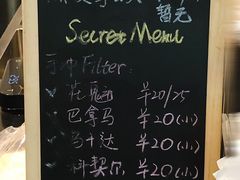 暂无
Secret Menu
手冲Filter:
花魁 ¥20/25
巴拿马 ¥20(小)
乌干达 ¥20(小)
科契尔 ¥20(小)